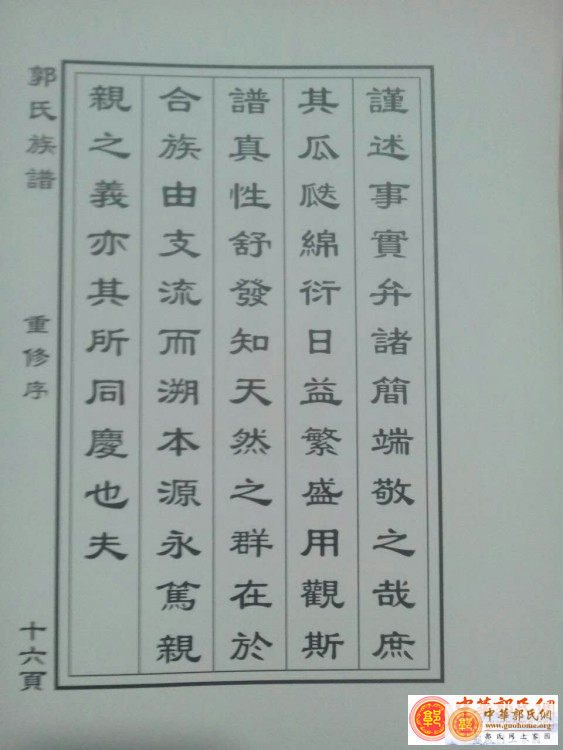 謹述事實弁諸簡端敬之哉庶
其瓜瓞綿衍日益繁盛用觀斯
譜真性舒發知天然之群在於
合族由支流而溯本源永篤親
親之義亦其所同慶也夫
郭氏族譜
重修序
十六頁
中華郭氏網
www.guohome.org
郭氏网上家园